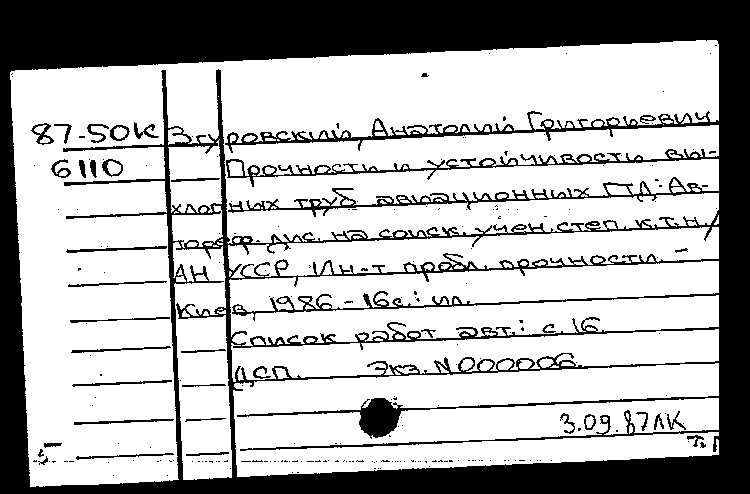 87-50К Згуровский, Анатолий Григорьевич.
6110 Прочность и устойчивость вы-
хлопных труб авиационных ГТД: Ав-
тореф. дис. на соиск. учен. степ. к.т.н. /
АН УССР, Ин-т пробл. прочности. -
Киев, 1986. - 16с.: ил.
Список работ авт.: с. 16.
ДСП. Экз. N 000006.
3.09.87ЛК
5